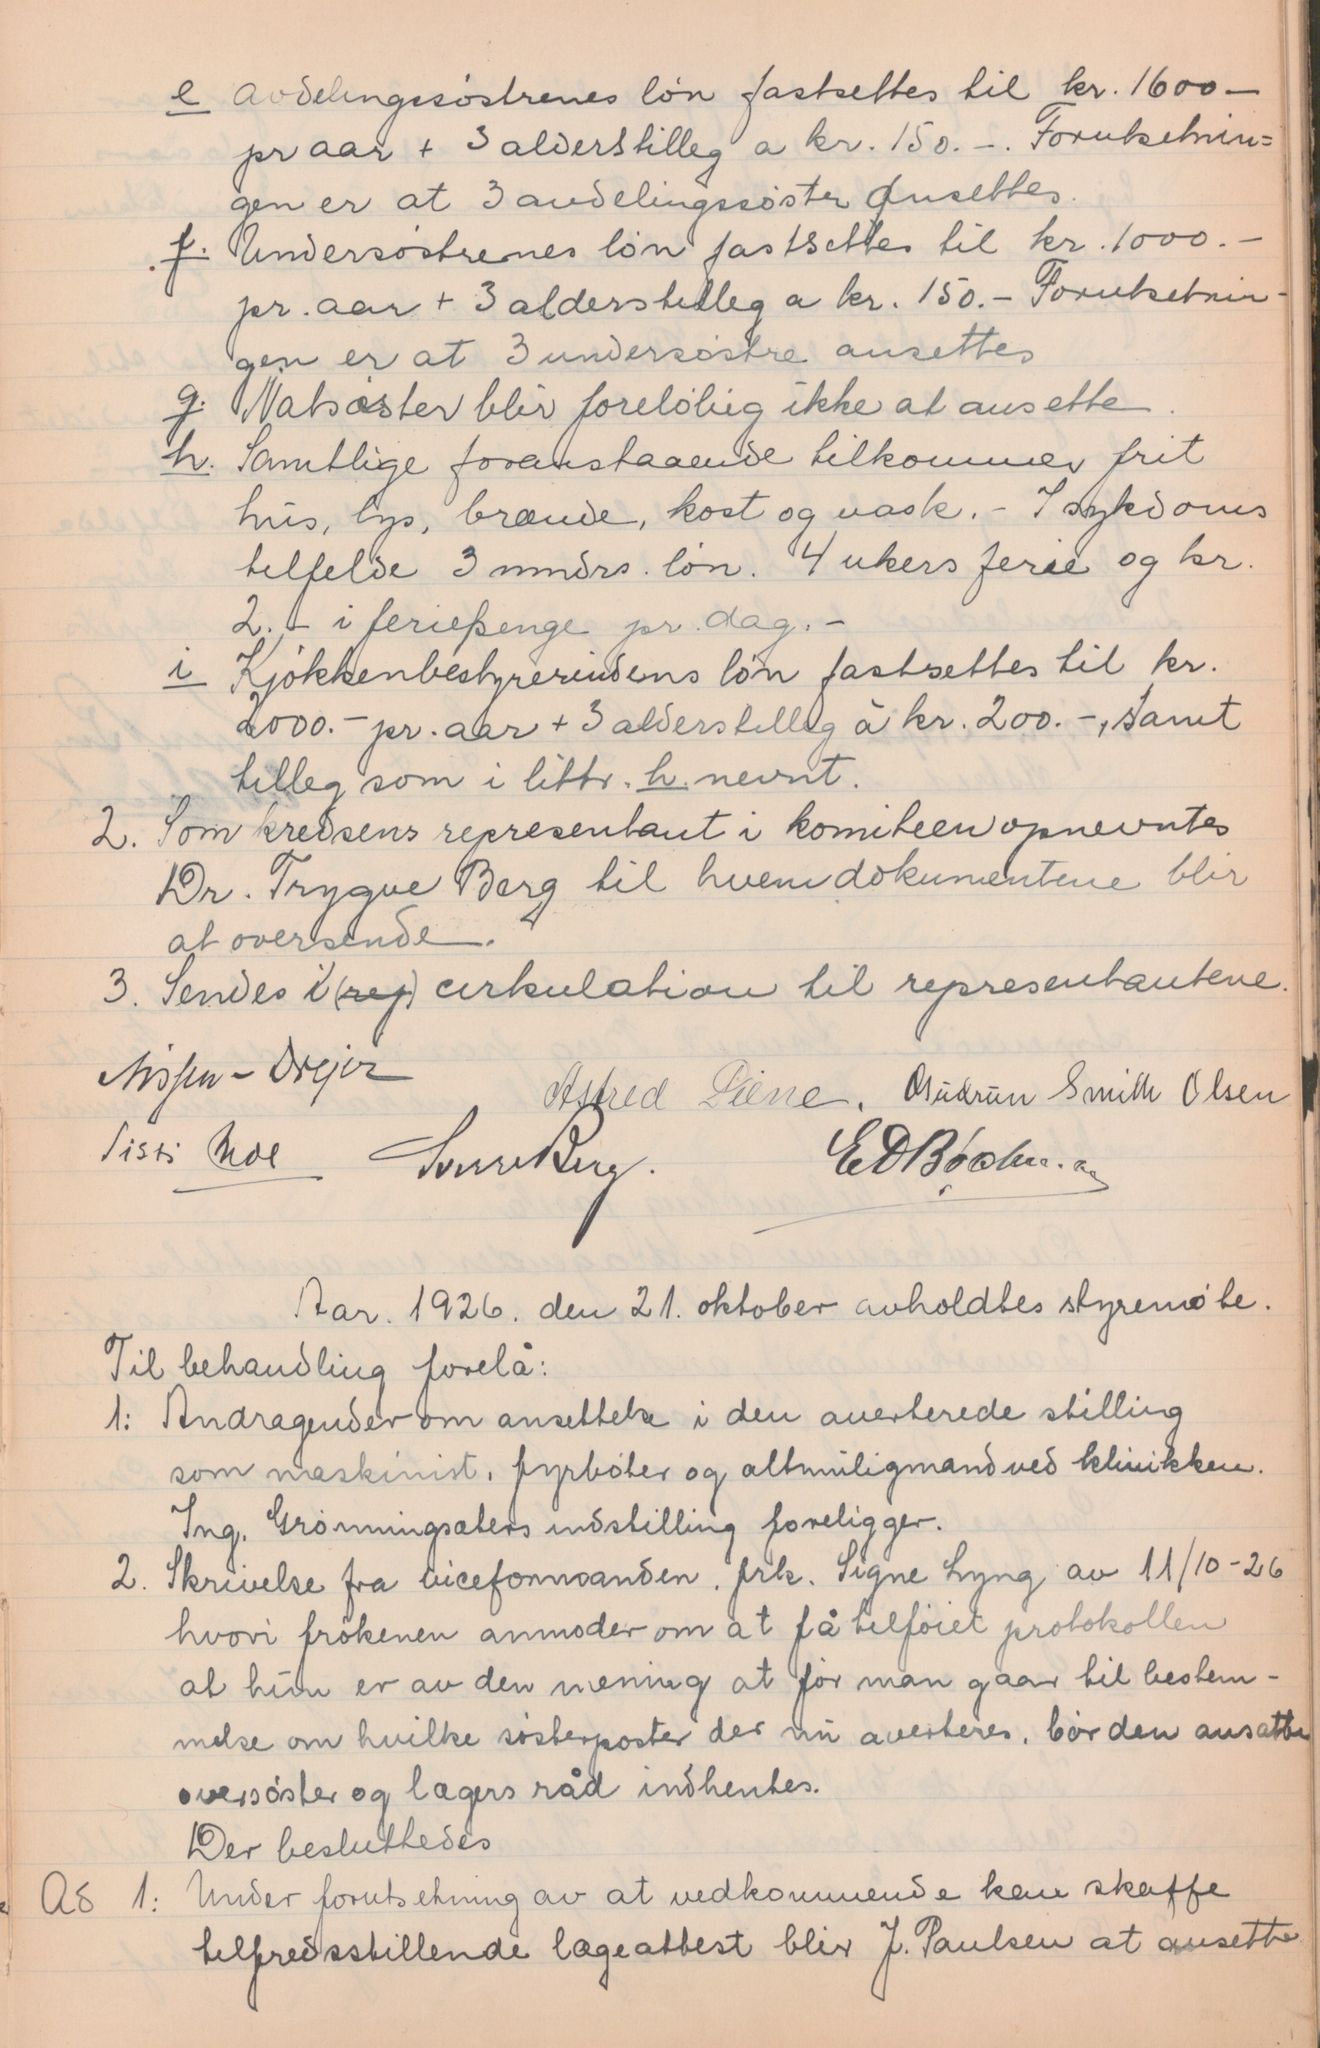 e avdelingssøstrenes løn fastsettes til kr. 1600 –
pr aar + 3 alderstilleg a kr. 150. –. Forutsetnin=
gen er at 3 avdelingssøster ansettes.
f. Undersøstrenes løn fastsettes til kr. 1000. –
pr. aar + 3 alderstilleg a kr. 150. – Forutsetnin-
gen er at 3 undersøstre ansettes
g. Natsøster blir foreløbig ikke at ansette.
h. Samtlige foranstaaende tilkommer frit
hus, lys, brænde, kost og vask. – I sykdoms
tilfelde 3 mndrs. løn. 4 ukers ferie og kr.
2. – i feriepenge pr. dag. –
i Kjøkkenbestyrerindens løn fastsettes til kr.
2000. – pr. aar + 3 alderstilleg à kr. 200. –, samt
tilleg som i littr. h. nevnt.
2. Som kredsens representant i komiteen opnevntes
Dr. Trygve Berg til hvem dokumentene blir
at oversende.
3. Sendes i (rep) cirkulation til representantene.
Nissen – Drejer
Astred Piene. Gudrun Smith Olsen
Sissi Moe Sverre Berg. E D Bøckman
Aar. 1926. den 21. oktober avholdtes styremøte.
Til behandling forelå:
1: Andragender om ansettelse i den averterede stilling
som maskinist, fyrbøter og altmuligmand ved klinikken.
Ing. Grønningsæters indstilling foreligger.
2. Skrivelse fra viceformanden, frk. Signe Lyng av 11/10-26
hvori frøkenen anmoder om at få tilføiet protokollen
at hun er av den mening at før man gaar til bestem-
melse om hvilke søsterposter der nu averteres, bør den ansatte
oversøster og lægers råd indhentes.
Der besluttedes
Ad 1: Under forutsetning av at vedkommende kan skaffe
tilfredsstillende lægeattest blir J. Paulsen at ansette